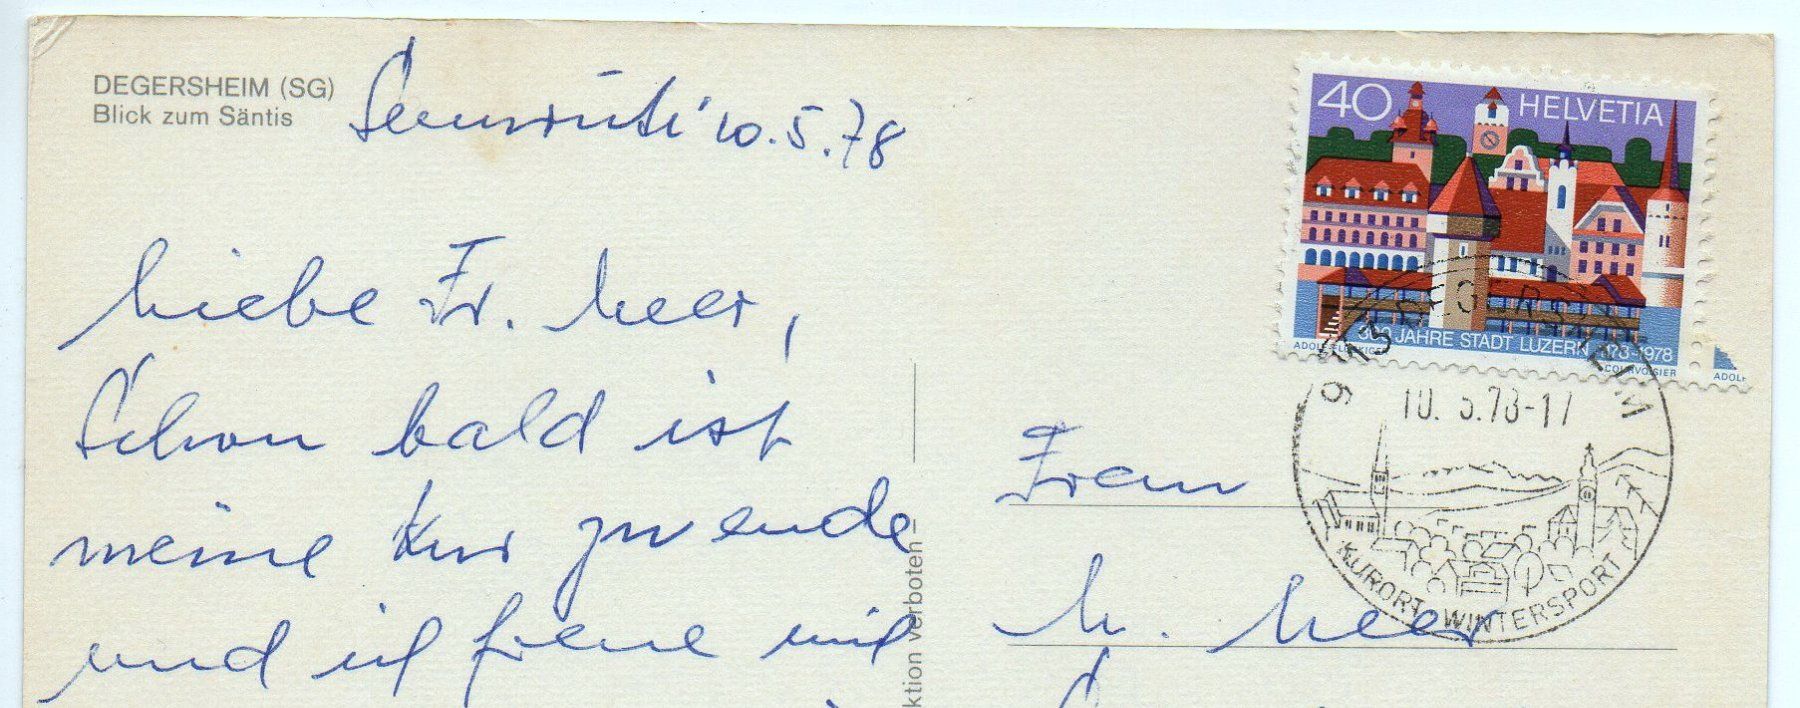 DEGERSHEIM (SG)
Blick zum Säntis
Sennrüti 10.5.78
Liebe Fr. Meer,
Schon bald ist
meine Kur zu ende
und ich freue mich
ktion verboten –
40 HELVETIA
JAHRE STADT LUZERN 1178-1978
COURVOISIER
ADOLF
9113 DEGERSHEIM
10. 5.78-17
KURORT WINTERSPORT
Frau
M. Meer